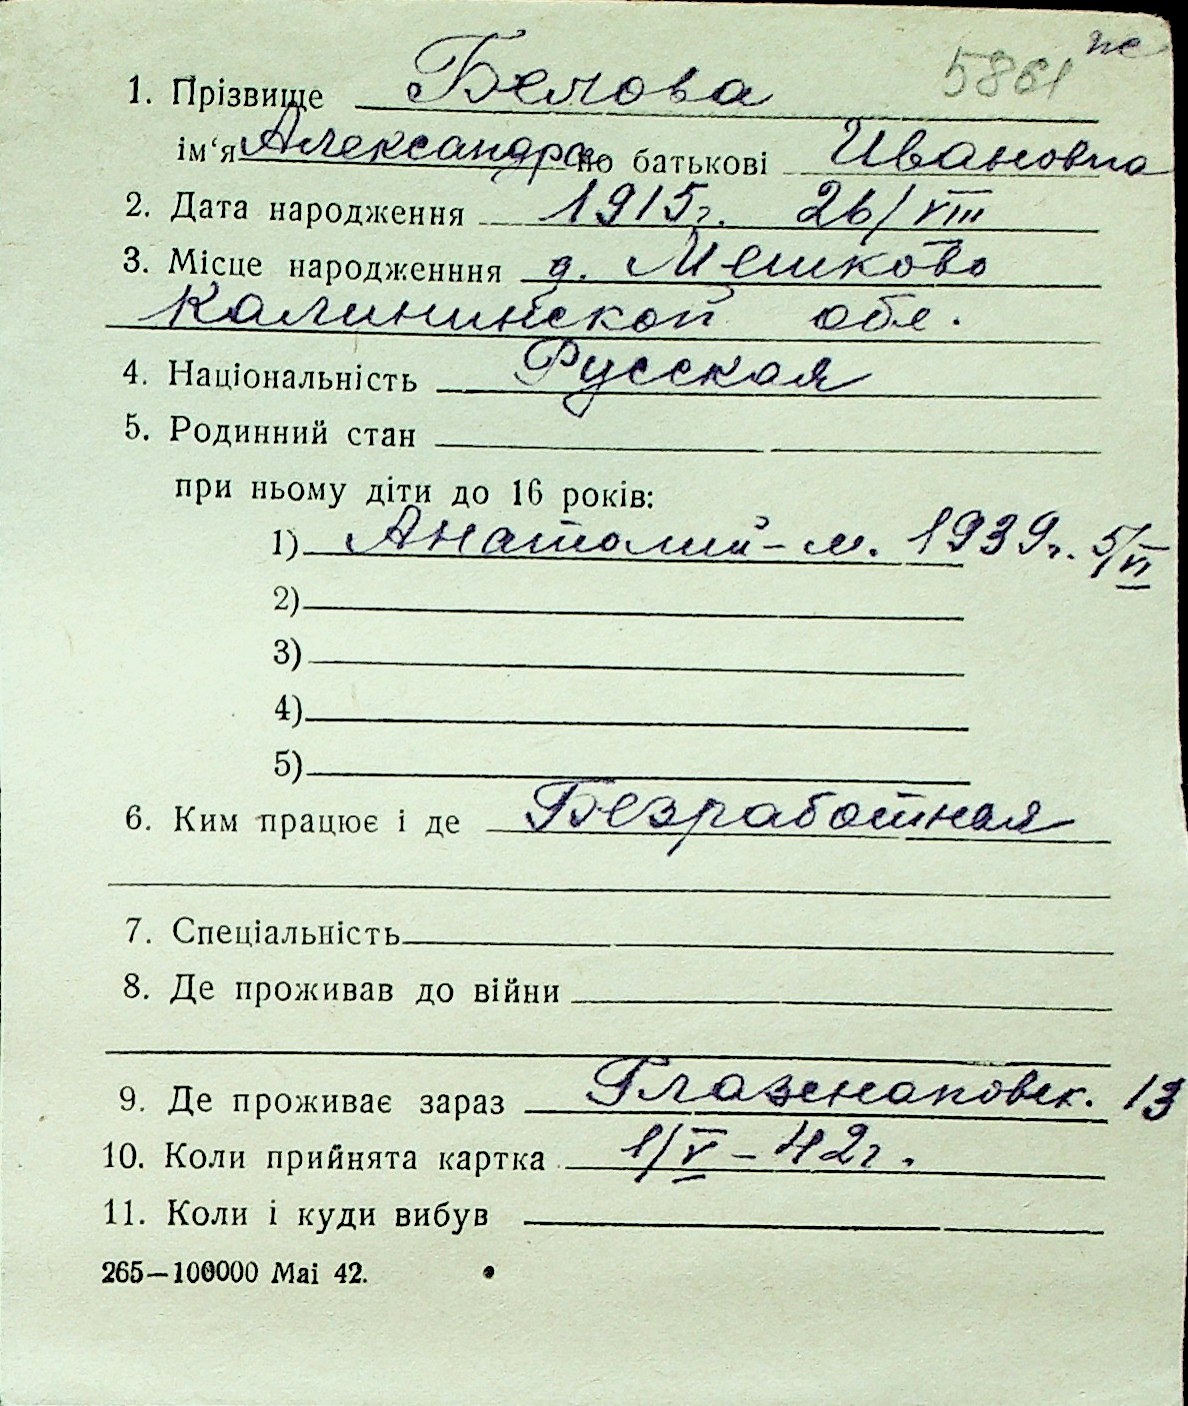 5861 пс
1. Прізвище Белова
ім‘я Александра по батькові Ивановна
2. Дата народження 1915г. 26/VIII
3. Місце народженння д. Мешково
Калининской обл.
4. Національність Русская
5. Родинний стан
при ньому діти до 16 років:
1) Анатолий - м. 1939г. 5/VI
2)
3)
4)
5)
6. Ким працює і де Безработная
7. Спеціальність
8. Де проживав до війни
9. Де проживає зараз 13
10. Коли прийнята картка 1/V - 42г.
11. Коли і куди вибув
265—100000 Mai 42.